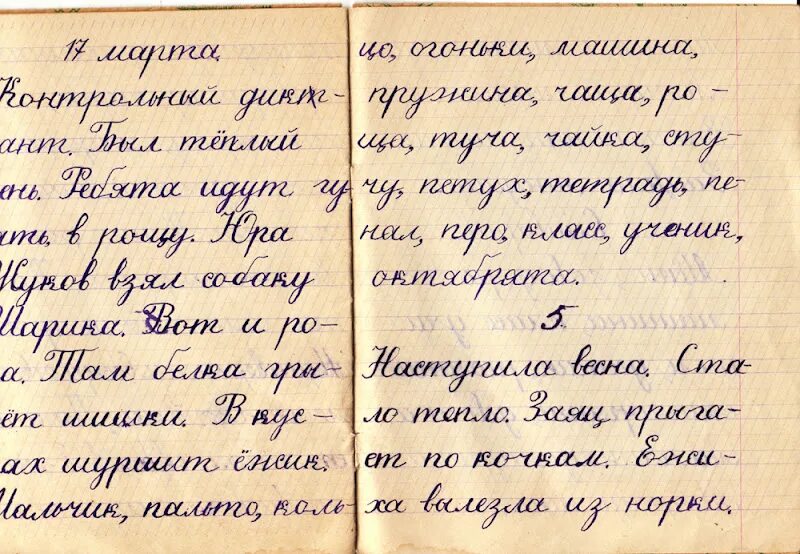 17 марта.
Контрольный дикт-
ант. Был тёплый
ень. Ребята идут гу
ять в рощу. Юра
Жуков взял собаку
Шарика. Вот и ро-
а. Там белка гры-
ёт шишки. В кус-
ах шуршит ёжик.
Мальчик, пальто, коль-
цо, огоньки, машина,
пружина, чаща, ро-
ща, туча, чайка, сту-
чу, петух, тетрадь, пе-
нал, перо, класс, ученик,
октябрята.
5.
Наступила весна. Ста-
ло тепло. Заяц прыга-
ет по кочкам. Ежи-
ха вылезла из норки.